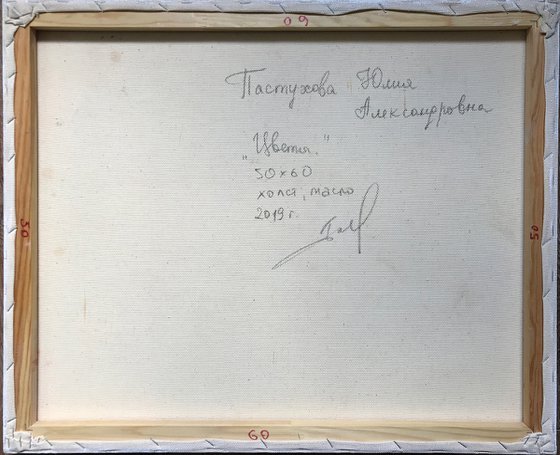 60
Пастухова Юлия
Александровна
„Цветы."
50х60
холст, масло
2019 г.
50
50
60